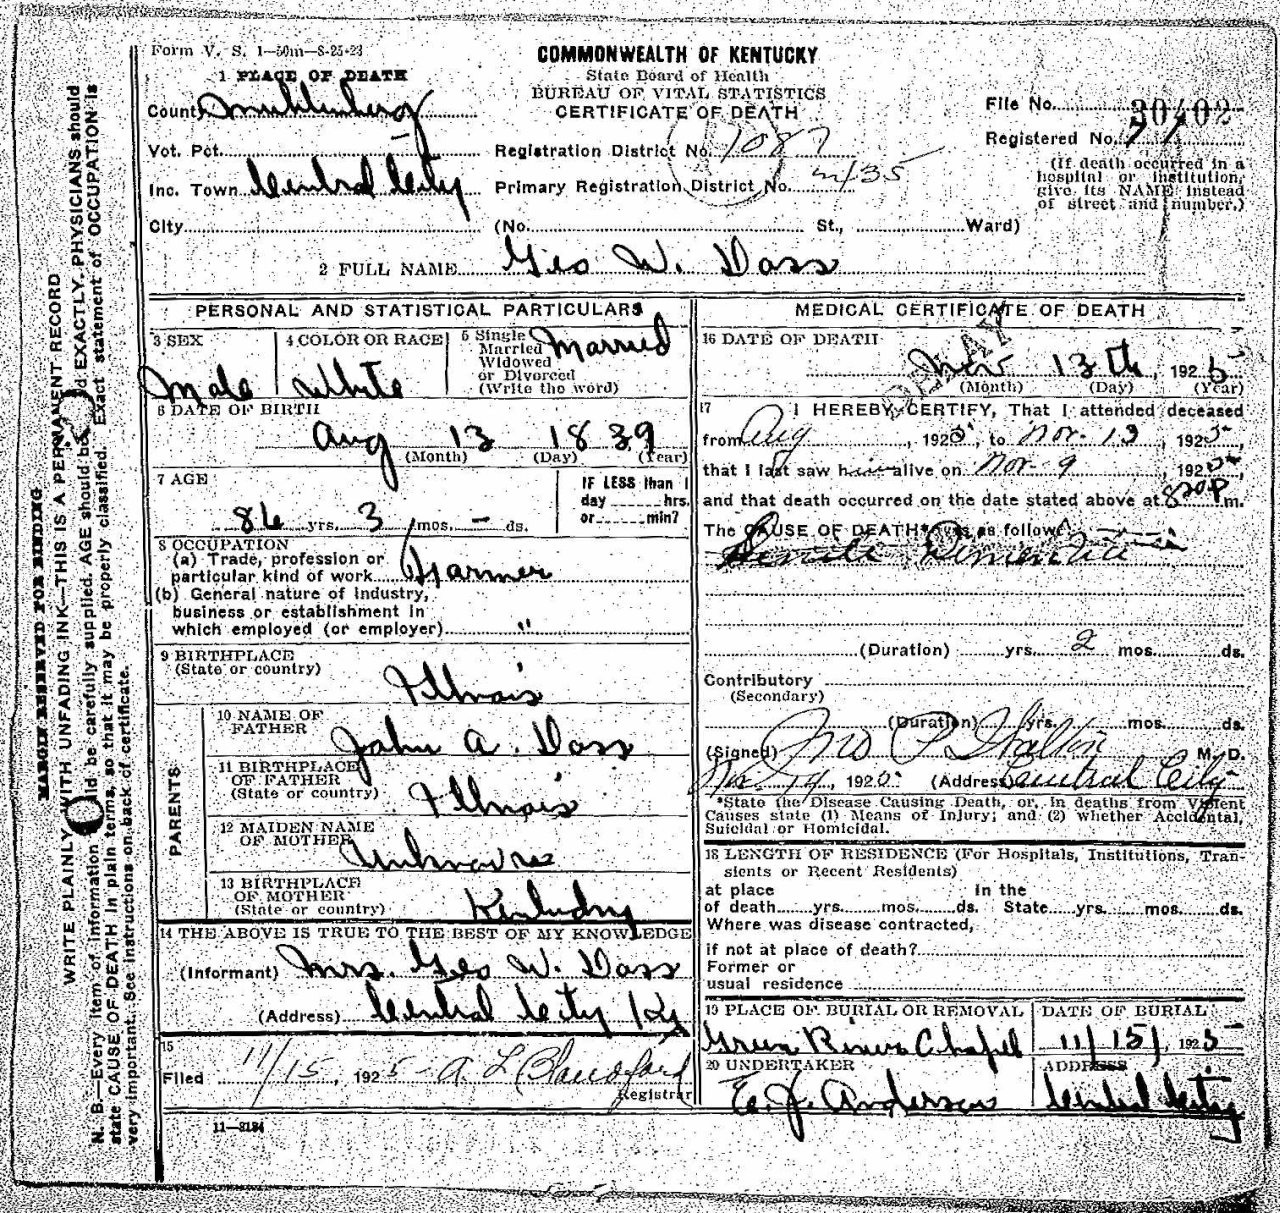 Form V. S. 1—50m—8-25-23
COMMONWEALTH OF KENTUCKY
State Board of Health
BUREAU OF VITAL STATISTICS
CERTIFICATE OF DEATH
1 PLACE OF DEATH
County Muhlenberg
File No. 30402
Registered No. 77
Vot. Pct.
Registration District No. 1087
(If death occurred in a
hospital or institution,
give its NAME instead
of street and number.)
Inc. Town Central City
Primary Registration District No.
City
(No. St., Ward)
2 FULL NAME Geo W. Doss
PERSONAL AND STATISTICAL PARTICULARS
3 SEX
Male
4 COLOR OR RACE
White
5 Single
Married
Widowed
or Divorced
(Write the word)
Married
6 DATE OF BIRTH
Aug 13 1839
(Month) (Day) (Year)
7 AGE
86 yrs. 3 mos. – ds.
IF LESS than 1
day hrs.
or min?
8 OCCUPATION
(a) Trade, profession or
particular kind of work Farmer
(b) General nature of industry,
business or establishment in
which employed (or employer) "
9 BIRTHPLACE
(State or country)
Illinois
PARENTS
10 NAME OF
FATHER
John A. Doss
11 BIRTHPLACE
OF FATHER
(State or country)
Illinois
12 MAIDEN NAME
OF MOTHER
Unknown
13 BIRTHPLACE
OF MOTHER
(State or country)
Kentucky
14 THE ABOVE IS TRUE TO THE BEST OF MY KNOWLEDGE
(Informant) Mrs. Geo W. Doss
(Address) Central City Ky
15
Filed 11/15, 1925 A. L. Blandford
Registrar
11—3184
MEDICAL CERTIFICATE OF DEATH
DELAY
16 DATE OF DEATH
Nov 13th, 1925
(Month) (Day) (Year)
17 I HEREBY CERTIFY, That I attended deceased
from Aug, 1925, to Nov. 13, 1925,
that I last saw him alive on Nov. 9, 1925,
and that death occurred on the date stated above at 820 P m.
The CAUSE OF DEATH* was as follows:
Senile Dementia
(Duration) yrs. 2 mos. ds.
Contributory
(Secondary)
(Duration) yrs. mos. ds.
(Signed) Jno P Walton M. D.
Nov. 14, 1925 (Address) Central City
*State the Disease Causing Death, or, in deaths from Violent
Causes state (1) Means of Injury; and (2) whether Accidental,
Suicidal or Homicidal.
18 LENGTH OF RESIDENCE (For Hospitals, Institutions, Tran-
sients or Recent Residents)
at place In the
of death yrs. mos. ds. State yrs. mos. ds.
Where was disease contracted,
if not at place of death?
Former or
usual residence
19 PLACE OF BURIAL OR REMOVAL
Green River Chapel
DATE OF BURIAL
11/15/, 1925
20 UNDERTAKER
E. J. Anderson
ADDRESS
Central City
MARGIN RESERVED FOR BINDING
WRITE PLAINLY WITH UNFADING INK—THIS IS A PERMANENT RECORD
N. B.—Every item of information should be carefully supplied. AGE should be stated EXACTLY. PHYSICIANS should
state CAUSE OF DEATH in plain terms, so that it may be properly classified. Exact statement of OCCUPATION is
very important. See instructions on back of certificate.